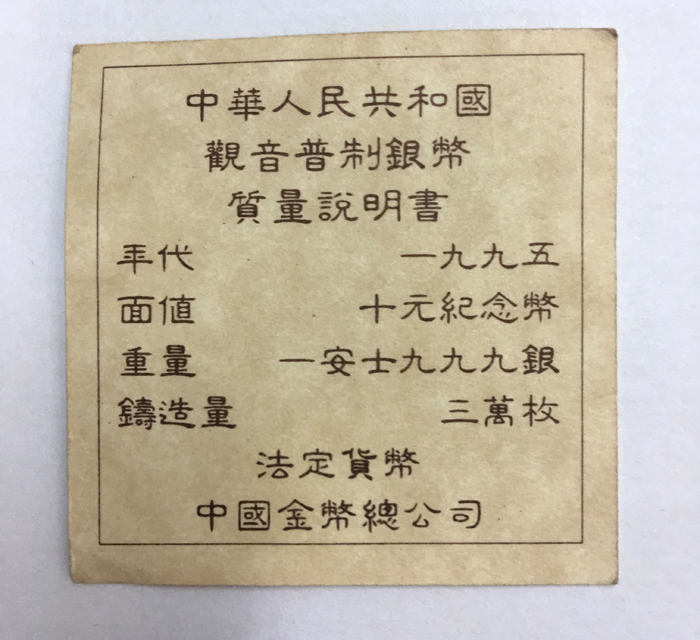 中華人民共和國
觀音普制銀幣
質量說明書
年代 一九九五
面值 十元紀念幣
重量 一安士九九九銀
鑄造量 三萬枚
法定貨幣
中國金幣總公司